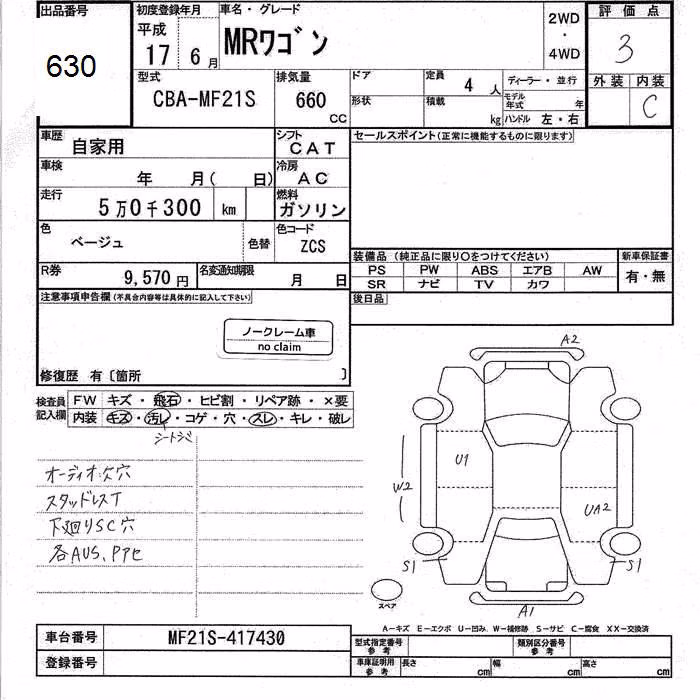 出品番号
630
初度登録年月
平成
17 6月
車名・グレード
MRワゴン
2WD
・
4WD
評価点
3
型式
CBA-MF21S
排気量
660
CC
ドア
形状
定員
4 人
積載
kg
ディーラー・並行
モデル年式 年
ハンドル 左・右
外装 内装
C
車歴
自家用
シフト
CAT
車検
年 月( 日)
冷房
AC
走行
5万0千300 km
燃料
ガソリン
色
ベージュ
色替
色コード
ZCS
R券
9,570円
名変通知期限
月 日
セールスポイント(正常に機能するものに限ります)
装備品 (純正品に限り○をつけてください)
PS PW ABS エアB AW
SR ナビ TV カワ
新車保証書
有・無
後日品
注意事項申告欄(不具合内容等は具体的に記入して下さい)
ノークレーム車
no claim
修復歴 有〔箇所 〕
検査員
記入欄
FW キズ・飛石・ヒビ割・リペア跡・×要
内装 キズ・汚レ・コゲ・穴・スレ・キレ・破レ
シートシミ
オーディオ欠穴
スタッドレスT
下廻りSC穴
各AUS、PアセA2
U1
W2
UA2
S1
S1
スペア
A1
A―キズ E―エクボ U―凹み W―補修跡 S―サビ C―腐食 XX―交換済
車台番号
MF21S-417430
登録番号
型式指定番号
参考
類別区分番号
参考
車庫証明用
参考
長さ cm
幅 cm
高さ cm